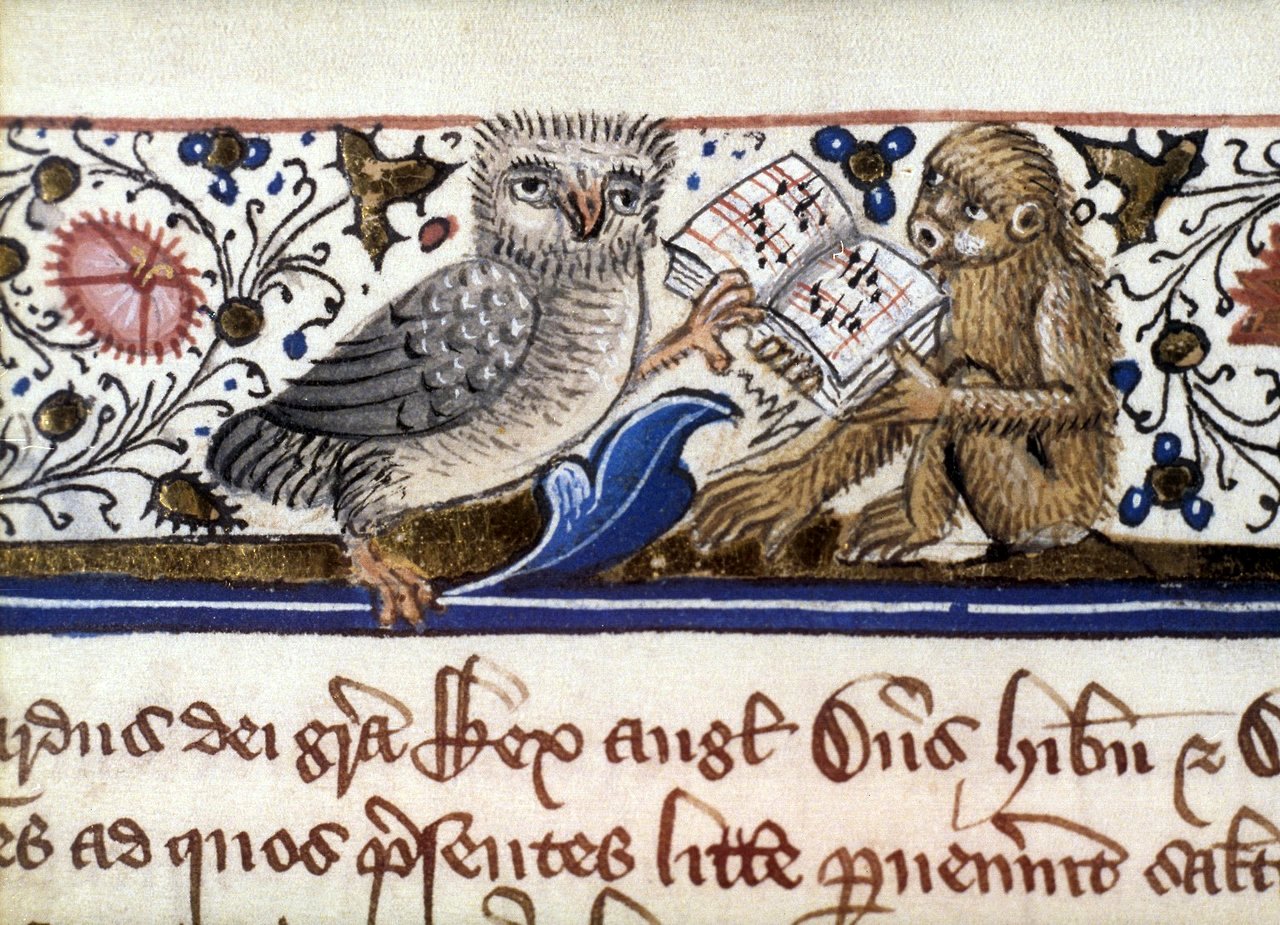 ardus dei gr̄a Rex angł Dn̄s hibn̄ ⁊
es ad quos p̄sentes litt̄e ꝑuen̄int salt̄